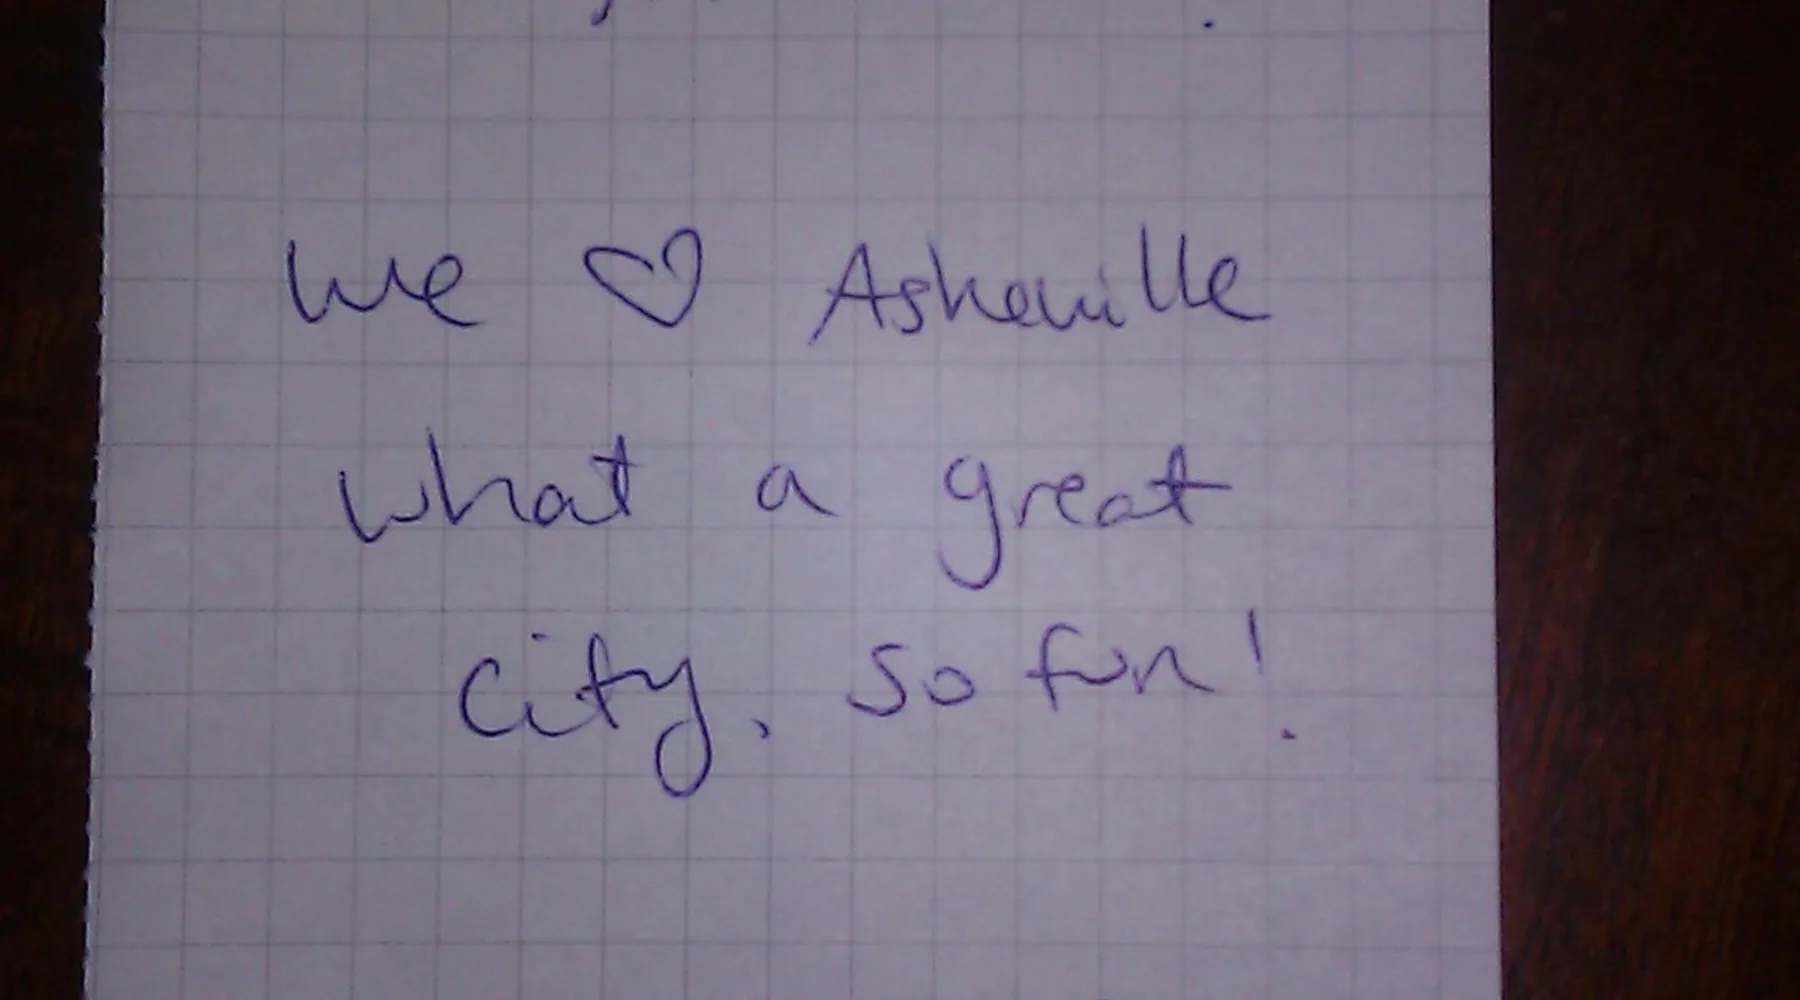 We ♡ Asheville
what a great
city, so fun!